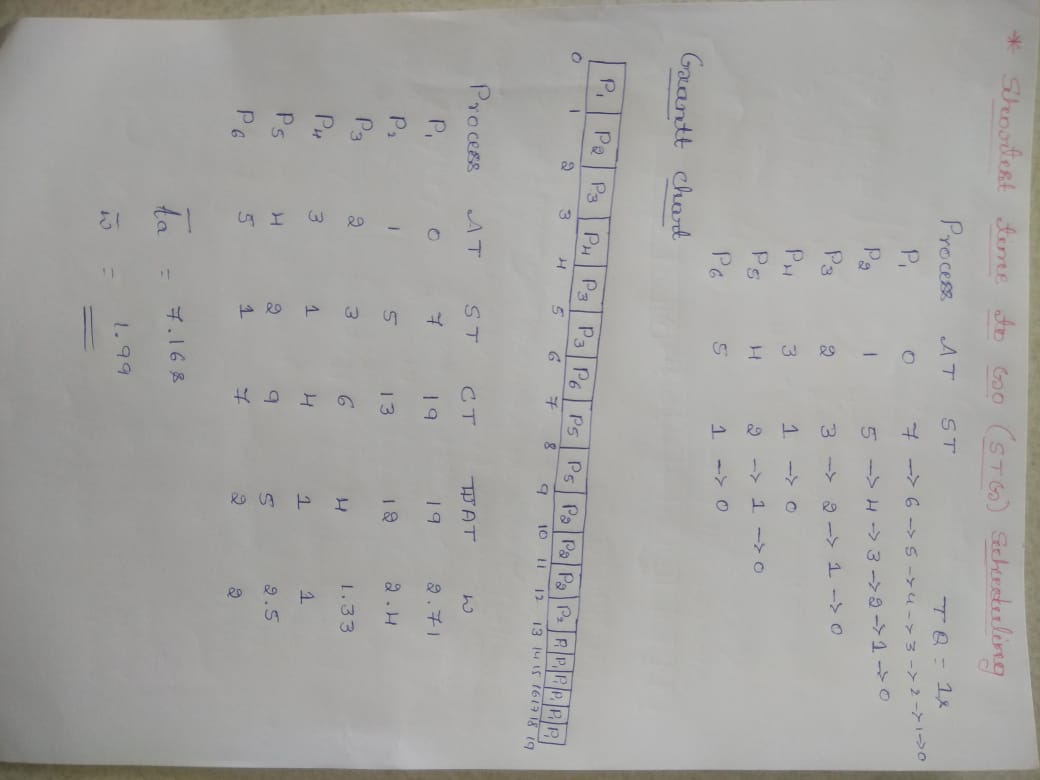 * Shortest time to Goo (STG) Scheduling
TQ = 1s
Process AT ST
P1 0 7 -> 6 -> 5 -> 4 -> 3 -> 2 -> 1 -> 0
P2 1 5 -> 4 -> 3 -> 2 -> 1 -> 0
P3 2 3 -> 2 -> 1 -> 0
P4 3 1 -> 0
P5 4 2 -> 1 -> 0
P6 5 1 -> 0
Gaantt Chard
P1 P2 P3 P4 P3 P3 P6 P5 P5 P2 P2 P2 P2 P1 P1 P1 P1 P1 P1
0 1 2 3 4 5 6 7 8 9 10 11 12 13 14 15 16 17 18 19
Process AT ST CT TAT W
P1 0 7 19 19 2.71
P2 1 5 13 12 2.4
P3 2 3 6 4 1.33
P4 3 1 4 1 1
P5 4 2 9 5 2.5
P6 5 1 7 2 2
ta = 7.168
w = 1.99